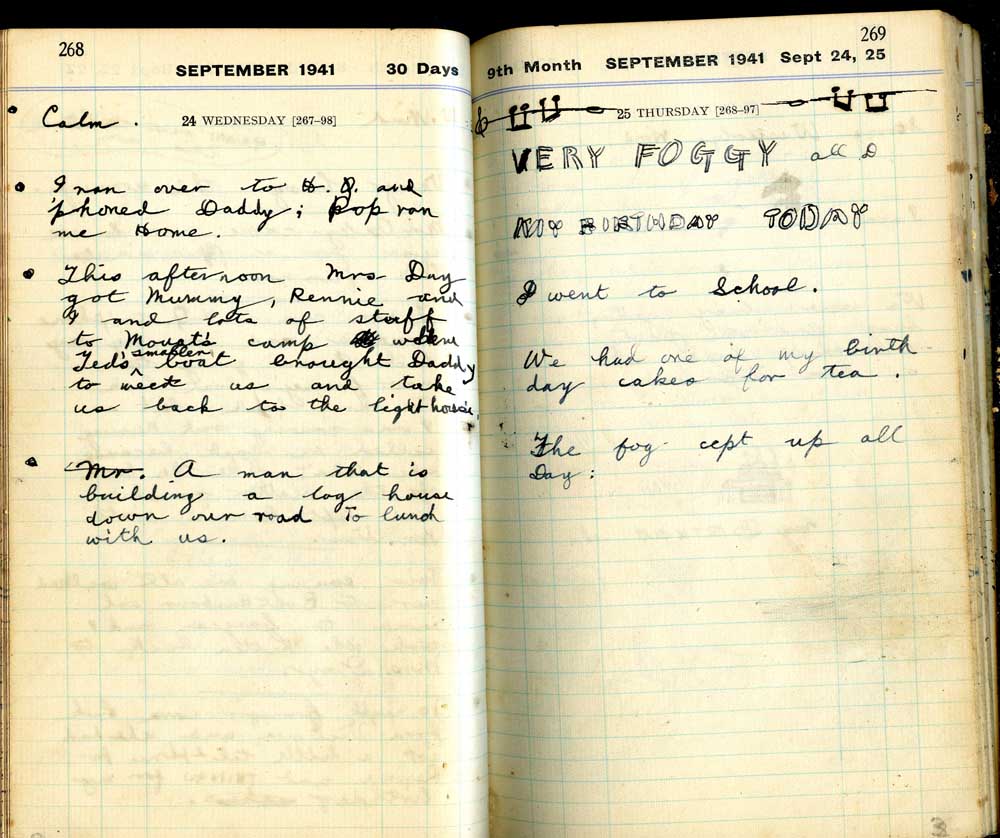 268
SEPTEMBER 1941 30 Days
Calm.
24 WEDNESDAY [267-98]
I ran over to H. Q. and
'phoned Daddy; Pop ran
me Home.
This afternoon Mrs Day
got Mummy, Rennie and
I and lots of stuff
to Mount's camp where
Ted's smaller boat brought Daddy
to meet us and take
us back to the lighthouse.
Mr. A man that is
building a log house
down our road To lunch
with us.
269
9th Month SEPTEMBER 1941 Sept 24, 25
25 THURSDAY [268-97]
VERY FOGGY all D
MY BIRTHDAY TODAY
I went to School.
We had one of my birth-
day cakes for tea.
The fog cept up all
Day: